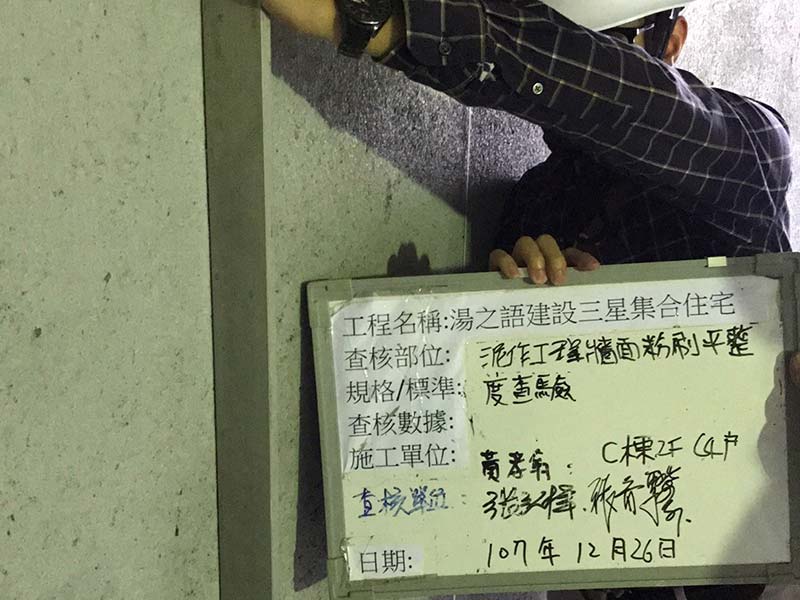 工程名稱:湯之語建設三星集合住宅
查核部位: 泥作工程牆面粉刷平整
規格/標準: 度查驗
查核數據:
施工單位: 黃孝 C棟2F C4戶
查核單位
日期: 107年12月26日